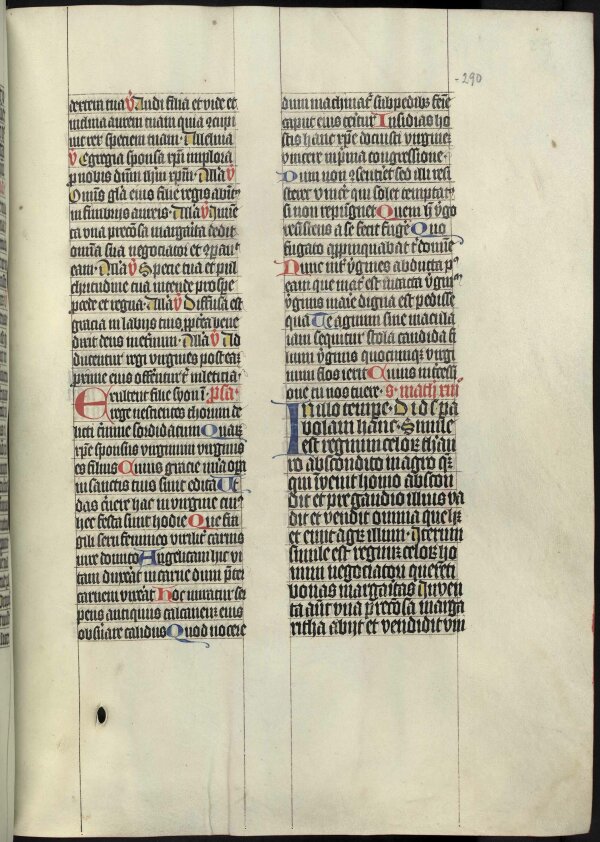 290
dextera tua V Audi filia et vide et
inclina aurem tuam quia ꝯcupi
uit rex speciem tuam · Alleluia
V Egregia sponsa xp̄i implora
p nobis dn̄m ih̄m xp̄m · All'a V
Omīs gl̄a eius filie regis ab int̄
in fimbriis aureis · All'a V Inuen
ta vna preciosa margarita dedit
omīa sua negociator et ꝯparauit
eam · All'a V Specie tua et pul
chritudine tua intende prospe
pcede et regna · All'a V Diffusa est
gracia in labiis tuis ppterea bene
dixit te deus in eternum · All'a V Ad
ducentur regi virgines post eam
proxime eius offerent̄r t̄ in leticia ·
Exultent filie syon ī
rege nescientes thorum de
licti crimine sordidatum Quare
xp̄e sponsus virginum virginis
es filius Cuius gracie mīa magni
in sanctis tuis sunt edita Vt
das cernere hac in virgine cui'
hec festa sunt hodie Que fra
gili sexu femineo viriliter carnis
iure domito Angelicam hic vi
tam duxerat in carne dum preter
carnem vixerat Hoc miratur ser
pens antiquus calcaneum eius
obseruare callidus Quod nocere
dum machinatr̄ sub pedibus femine
caput eius teritur Insidias ho
stis hanc xp̄e docuisti virginem
vincere in prima congressione ·
Dum non ꝯsentitur sed illi resi
stitur vincitur qui solet temptare
si non repugnetur Quem hec virgo
recusiens a se fecit fugere Quo
fugato appropinquabat t̄ domine
Nunc inter virgines abducta post
eam que mater est intacta virginum
virginis marie digna est pedisse
qua Te agnum sine macula
iam sequitur stola candida fi
lium virginis quocumque virgi
num flos ierit Cuius incessi
one tu nos tuere · S. math xiii
In illo tempe · Dix̄ ih̄c pa
bolam hanc · Simile
est regnum celorꝝ thezau
ro abscondito in agro Qm̄
qui inuenit homo abscon
dit et pre gaudio illius va
dit et vendit omnia que habet
et emit agrum illum · Iterum
simile est regnum celorꝝ ho
mini negociatori querenti
bonas margaritas Inuen
ta aut̄ vna preciosa marga
ritha abijt et vendidit vni